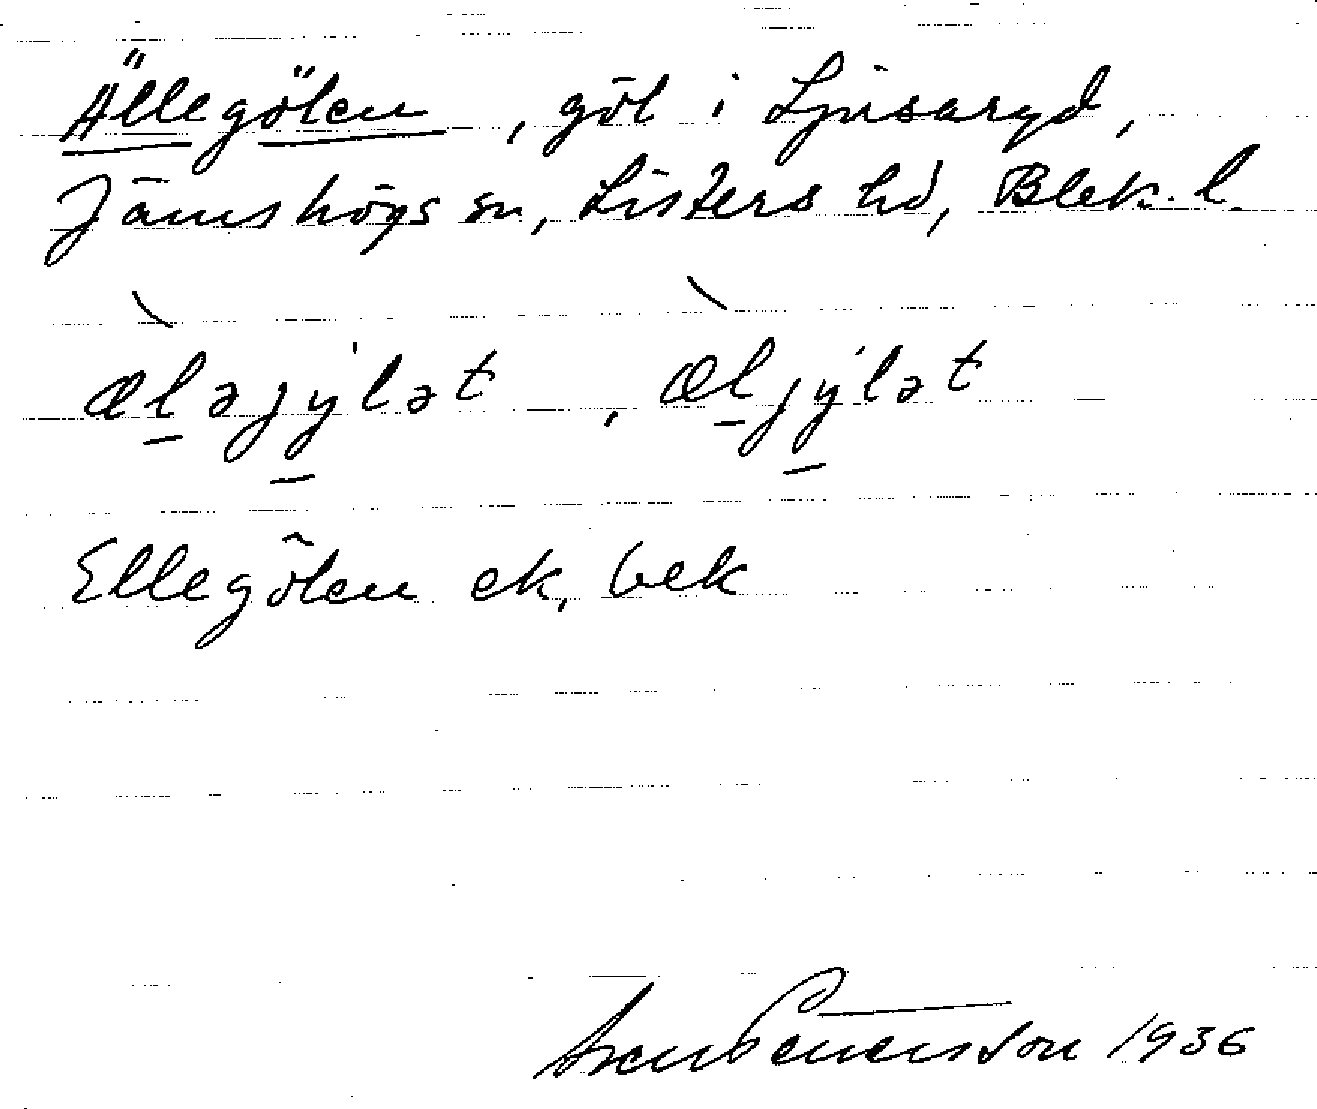 Ällegölen, göl i Ljusaryd,
Jämshögs sn, Listers hd, Blek. l.
æl̠əjy̠'lət, æl̠jy̠'lət
Ellegölen ek, bek
Svenson 1936